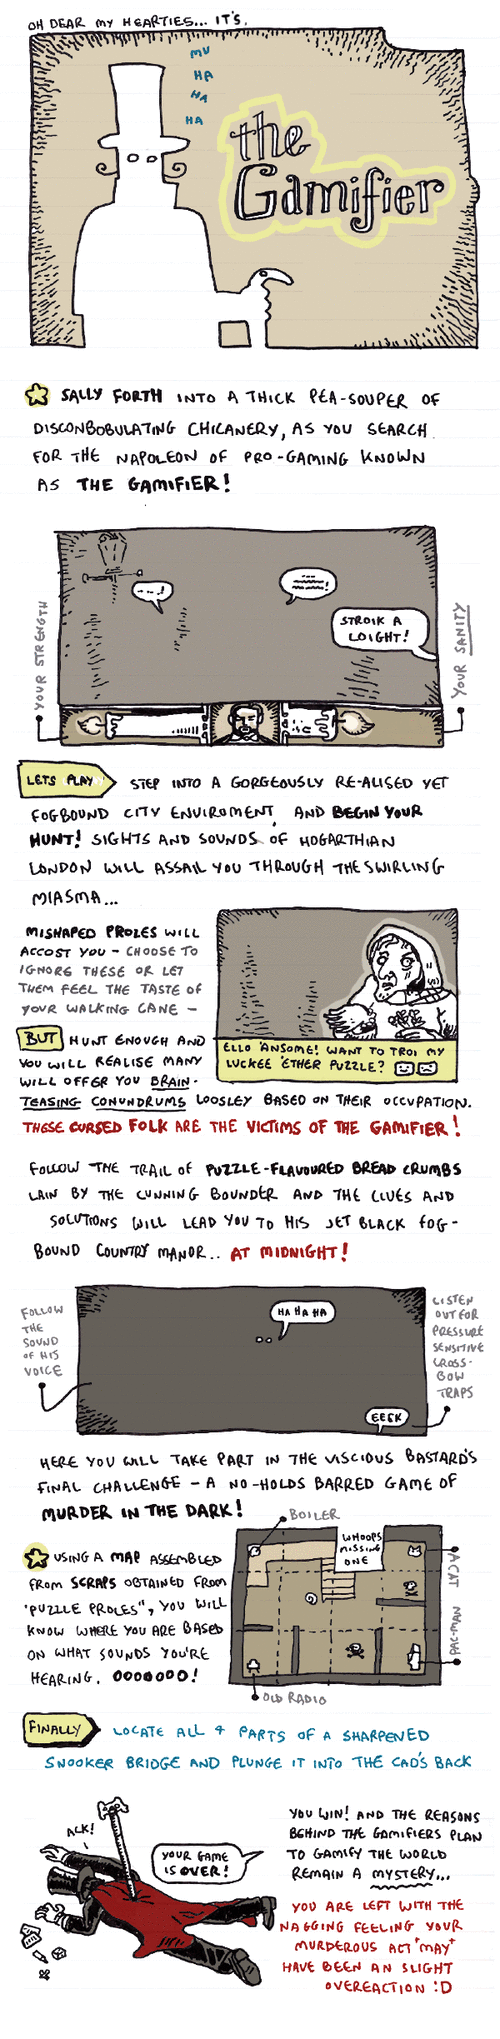 OH DEAR MY HEARTIES... IT'S.
MU
HA
HA
HA
the
Gamifier
SALLY FORTH INTO A THICK PEA-SOUPER OF
DISCONBOBULATING CHICANERY, AS YOU SEARCH
FOR THE NAPOLEON OF PRO-GAMING KNOWN
AS THE GAMIFIER!
STROIK A
LOIGHT!
YOUR STRENGTH
YOUR SANITY
LETS PLAY
STEP INTO A GORGEOUSLY RE-ALISED YET
FOGBOUND CITY ENVIROMENT, AND BEGIN YOUR
HUNT! SIGHTS AND SOUNDS OF HOGARTHIAN
LONDON WILL ASSAIL YOU THROUGH THE SWIRLING
MIASMA...
MISHAPED PROLES WILL
ACCOST YOU - CHOOSE TO
IGNORE THESE OR LET
THEM FEEL THE TASTE OF
YOUR WALKING CANE -
BUT HUNT ENOUGH AND
YOU WILL REALISE MANY
WILL OFFER YOU BRAIN-
TEASING CONUNDRUMS LOOSLEY BASED ON THEIR OCCUPATION.
THESE CURSED FOLK ARE THE VICTIMS OF THE GAMIFIER!
ELLO 'ANSOME! WANT TO TROI MY
LUCKEE 'ETHER PUZZLE?
FOLLOW THE TRAIL OF PUZZLE-FLAVOURED BREAD CRUMBS
LAIN BY THE CUNNING BOUNDER AND THE CLUES AND
SOLUTIONS WILL LEAD YOU TO HIS JET BLACK FOG-
BOUND COUNTRY MANOR.. AT MIDNIGHT!
FOLLOW
THE
SOUND
OF HIS
VOICE
HA HA HA
EEEK
LISTEN
OUT FOR
PRESSURE
SENSITIVE
CROSS-
BOW
TRAPS
HERE YOU WILL TAKE PART IN THE VISCIOUS BASTARD'S
FINAL CHALLENGE - A NO-HOLDS BARRED GAME OF
MURDER IN THE DARK!
USING A MAP ASSEMBLED
FROM SCRAPS OBTAINED FROM
"PUZZLE PROLES", YOU WILL
KNOW WHERE YOU ARE BASED
ON WHAT SOUNDS YOU'RE
HEARING. OOOOOOO!
BOILER
WHOOPS
MISSING
ONE
A CAT
PAC-MAN
OLD RADIO
FINALLY
LOCATE ALL 4 PARTS OF A SHARPENED
SNOOKER BRIDGE AND PLUNGE IT INTO THE CAD'S BACK
ACK!
YOUR GAME
IS OVER!
YOU WIN! AND THE REASONS
BEHIND THE GAMIFIERS PLAN
TO GAMIFY THE WORLD
REMAIN A MYSTERY...
YOU ARE LEFT WITH THE
NAGGING FEELING YOUR
MURDEROUS ACT *MAY*
HAVE BEEN AN SLIGHT
OVEREACTION :D